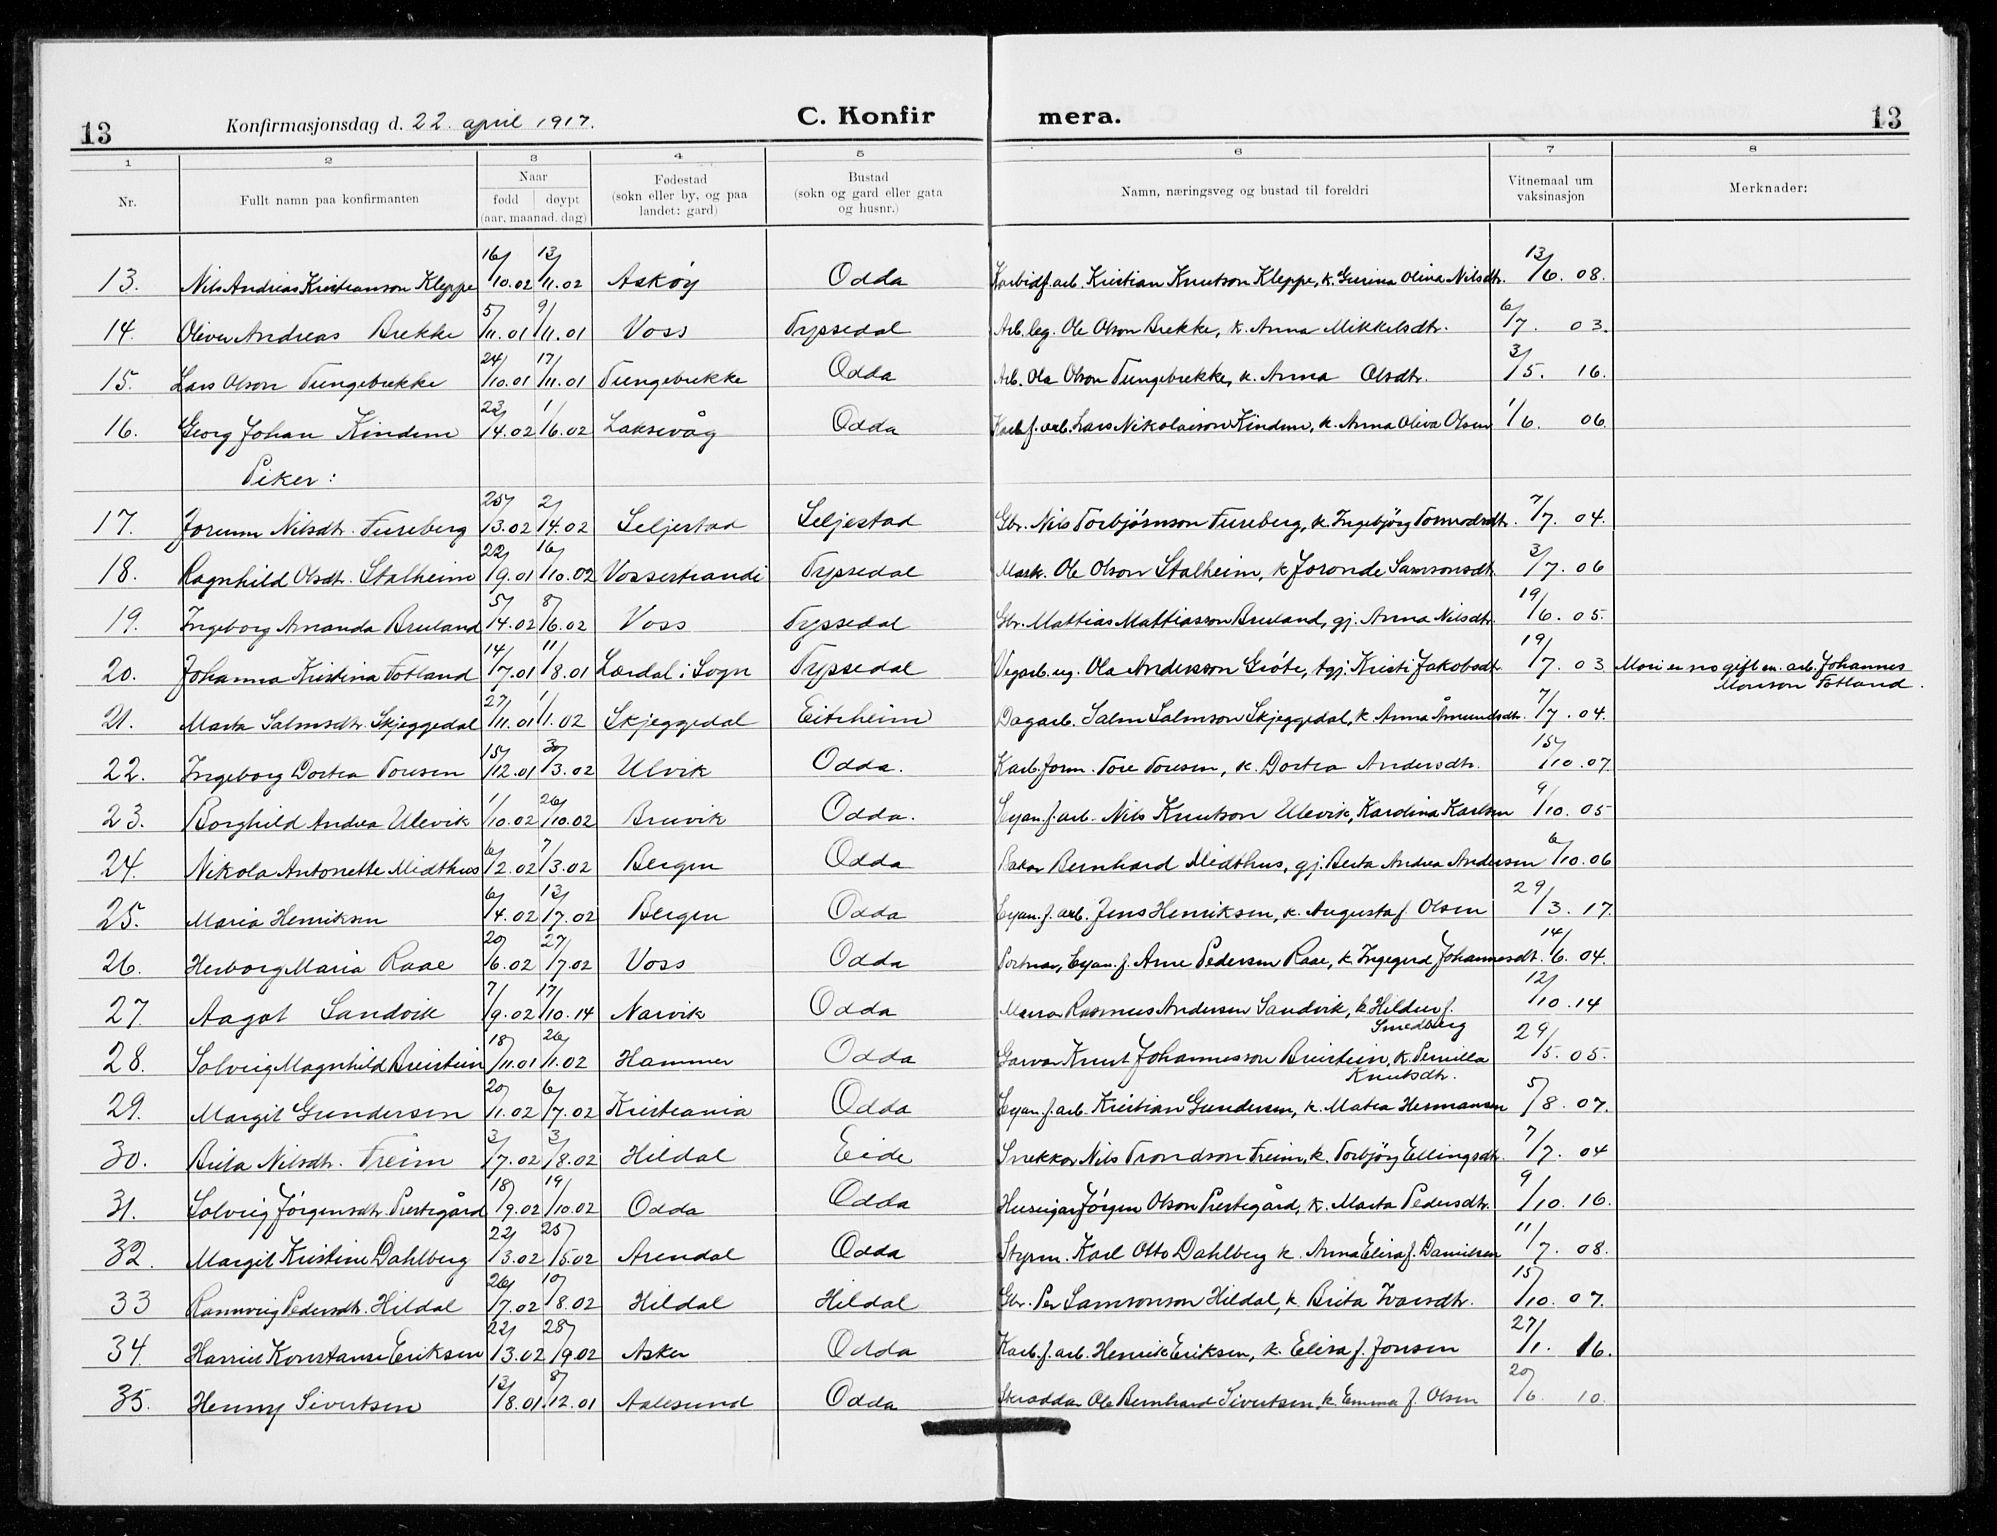 13 Konfirmasjonsdag d. 22. april 1917. C. Konfir mera. 13
1 2 3 4 5 6 7 8
Nr. Fullt namn paa konfirmanten Naar fødd døypt (aar, maanad, dag) Fødestad (sokn eller by, og paa landet: gard) Bustad (sokn og gard eller gata og husnr.) Namn, næringsveg og bustad til foreldri Vitnemaal um vaksinasjon Merknader:
13. Nils Andreas Kristianson Kleppe 16/10.02 13/11.02 Askøy Odda Karbidf. arb. Kristian Knutson Kleppe, k. Gurina Olina Nilsdtr. 13/6. 08.
14. Oliver Andreas Brekke 5/11.01 9/11.01 Voss Tyssedal Arb. leg. Ole Olson Brekke, k. Anna Mikkelsdtr. 6/7. 03.
15. Lars Olson Tungebrekke 24/10.01 17/11.01 Tungebrekke Odda Arb. Ola Olson Tungebrekke, k. Anna Olsdtr. 3/5. 16.
16. Georg Johan Kindem 23/4.02 1/6.02 Laksevåg Odda Karb.f. arb. Lars Nikolaison Kindem, k. Anna Oliva Olsen 1/6. 06.
Piker:
17. Jorunn Nilsdtr. Tureberg 25/3.02 2/4.02 Seljestad Seljestad Gbr. Nils Torbjørnson Tureberg, k. Ingebjørg Tormodsdtr. 7/7. 04.
18. Ragnhild Olsdtr. Stalheim 22/9.01 16/10.02 Vossestrandi Tyssedal Mask. Ole Olson Stalheim, k. Joronde Samsonsdtr. 3/7. 06
19. Ingeborg Amanda Bruland 5/4.02 8/6.02 Voss Tyssedal Gbr. Mattias Mattiasson Bruland, gj. Anna Nilsdtr. 19/6. 05.
20. Johanna Kristina Totland 14/7.01 11/8.01 Lærdal i Sogn Tyssedal Vegarb. ug. Ola Andersson Grøte, tgj. Kristi Jakobsdtr. 19/7. 03 Mori er no gift m. arb. Johannes
Monson Totland.
21. Marta Salmsdtr. Skjeggedal 27/11.01 1/1.02 Skjeggedal Eitrheim Dagarb. Salm Salmson Skjeggedal, k. Anna Åmundsdtr. 7/7. 04.
22. Ingeborg Dortea Toresen 15/12.01 30/3.02 Ulvik Odda. Karb. form. Tore Toresen, k. Dortea Andersdtr. 15/10. 07
23. Borghild Andrea Ulevik 1/10.02 26/10.02 Bruvik Odda. Cyan. f. arb. Nils Knutson Ulevik, Kardina Karlsen 9/10. 05
24. Nikola Antonette Midthus 6/2.02 7/3.02 Bergen Odda Bakar Bernhard Midthus, gj. Berta Andrea Andersen 6/10. 06
25. Maria Henriksen 6/4.02 13/7.02 Bergen Odda Cyan. f. arb. Jens Henriksen, k. Augusta f. Olsen 29/3. 17.
26. Herborg Maria Raae 20/6.02 27/7.02 Voss Odda Portnar, Cyan. f. Arne Pedersen Raae, k. Ingegerd Johannesdt. 14/6. 04.
27. Aagot Sandvik 7/9.02 17/10.14 Narvik Odda Murar Rasmus Andersen Sandvik, k. Hildur f.
Smedberg 12/10. 14
28. Solveig Magnhild Breistein 18/11.01 26/1.02 Hammer Odda Garvar Knut Johannesson Breistein, k. Pernilla
Knutsdtr. 29/5. 05.
29. Margit Gundersen 20/1.02 6/7.02 Kristiania Odda Cyan. f. arb. Kristian Gundersen, k. Matea Hermansen 5/8. 07.
30. Brita Nilsdtr. Freim 3/7.02 3/8.02 Hildal Eide Snekkar Nils Trondson Freim, k. Torbjørg Ellingsdtr. 7/7. 04
31. Solveig Jørgensdtr. Prestegård 18/9.02 19/10.02 Odda Odda Huseigar Jørgen Olson Prestegård, k. Marta Pedersdtr. 9/10. 16.
32. Margit Kristine Dahlberg 22/3.02 25/5.02 Arendal Odda Styrm. Karl Otto Dahlberg k. Anna Elisa f. Danielsen 11/7. 08.
33 Rannveig Pedersdtr. Hildal 26/7.02 10/8.02 Hildal Hildal Gbr. Per Samsonson Hildal, k. Brita Ivarsdtr. 15/10. 07.
34. Harriet Konstanse Eriksen 22/3.02 28/9.02 Asker Odda Karb. f. arb. Henrik Eriksen, k. Elisa f. Jonsen 27/1. 16.
35. Henny Sivertsen 13/8.01 8/12.01 Aalesund Odda Skraddar Ole Bernhard Sivertsen, k. Emma f. Olsen 20/6 10.